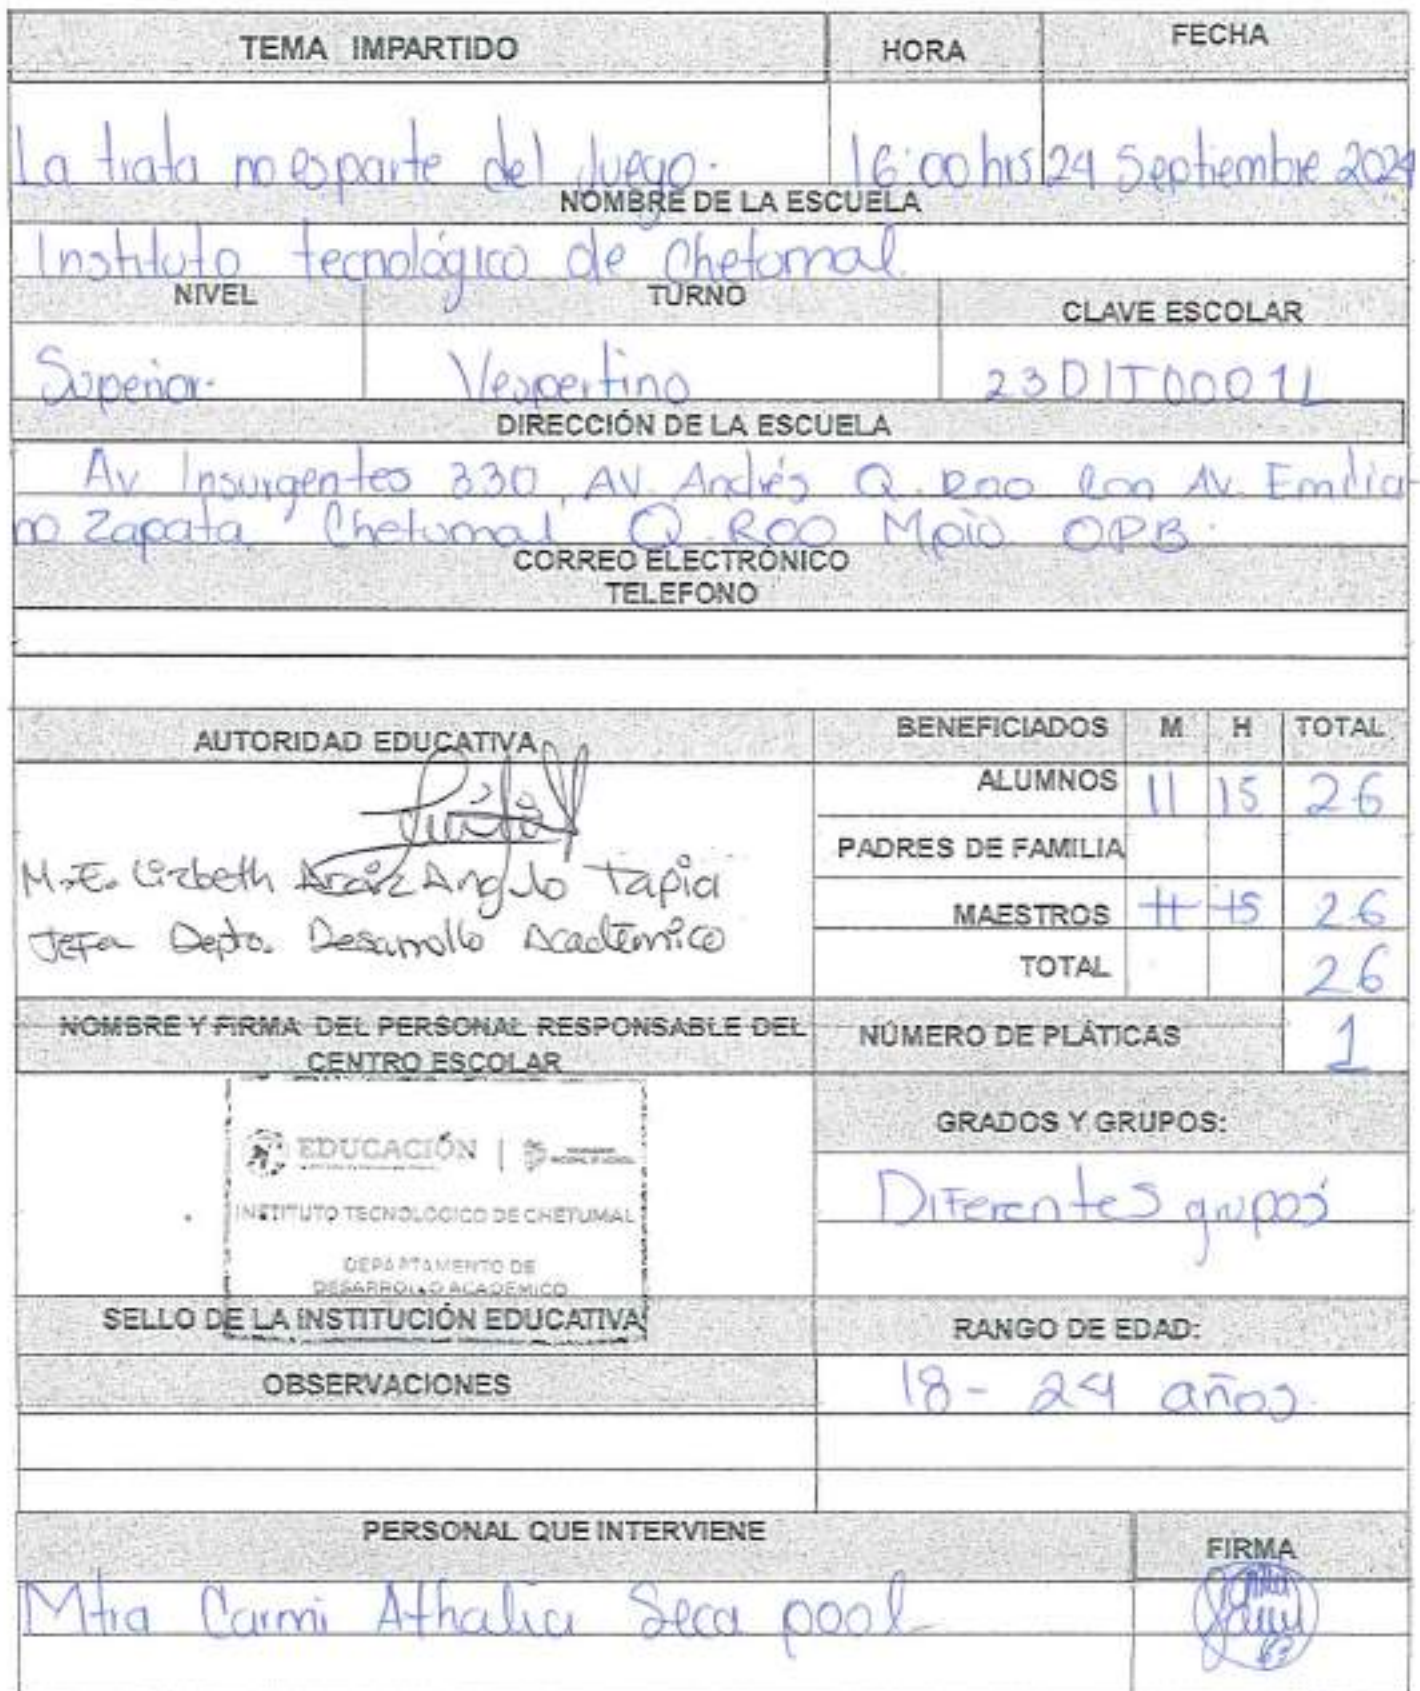 TEMA IMPARTIDO HORA FECHA
La trata no es parte del Juego. 16:00 hrs 24 Septiembre 2024
NOMBRE DE LA ESCUELA
Instituto tecnológico de Chetumal.
NIVEL TURNO CLAVE ESCOLAR
Superior. Vespertino 23DIT0001L
DIRECCIÓN DE LA ESCUELA
Av Insurgentes 330, AV. Andrés Q. Roo Con AV. Emilia-
no Zapata, Chetumal Q. ROO Mpio. OPB.
CORREO ELECTRÓNICO
TELEFONO
AUTORIDAD EDUCATIVA BENEFICIADOS M H TOTAL
ALUMNOS 11 15 26
PADRES DE FAMILIA
M.E. Lizbeth Angulo Tapia
MAESTROS 11 15 26
Jefa Depto. Desarrollo Académico
TOTAL 26
NOMBRE Y FIRMA DEL PERSONAL RESPONSABLE DEL
CENTRO ESCOLAR
NÚMERO DE PLÁTICAS 1
EDUCACIÓN
INSTITUTO TECNOLÓGICO DE CHETUMAL
DEPARTAMENTO DE
DESARROLLO ACADÉMICO
GRADOS Y GRUPOS:
Diferentes grupos
SELLO DE LA INSTITUCIÓN EDUCATIVA
RANGO DE EDAD:
OBSERVACIONES
18 - 24 años.
PERSONAL QUE INTERVIENE FIRMA
Mtra Carmi Athalia Seca pool